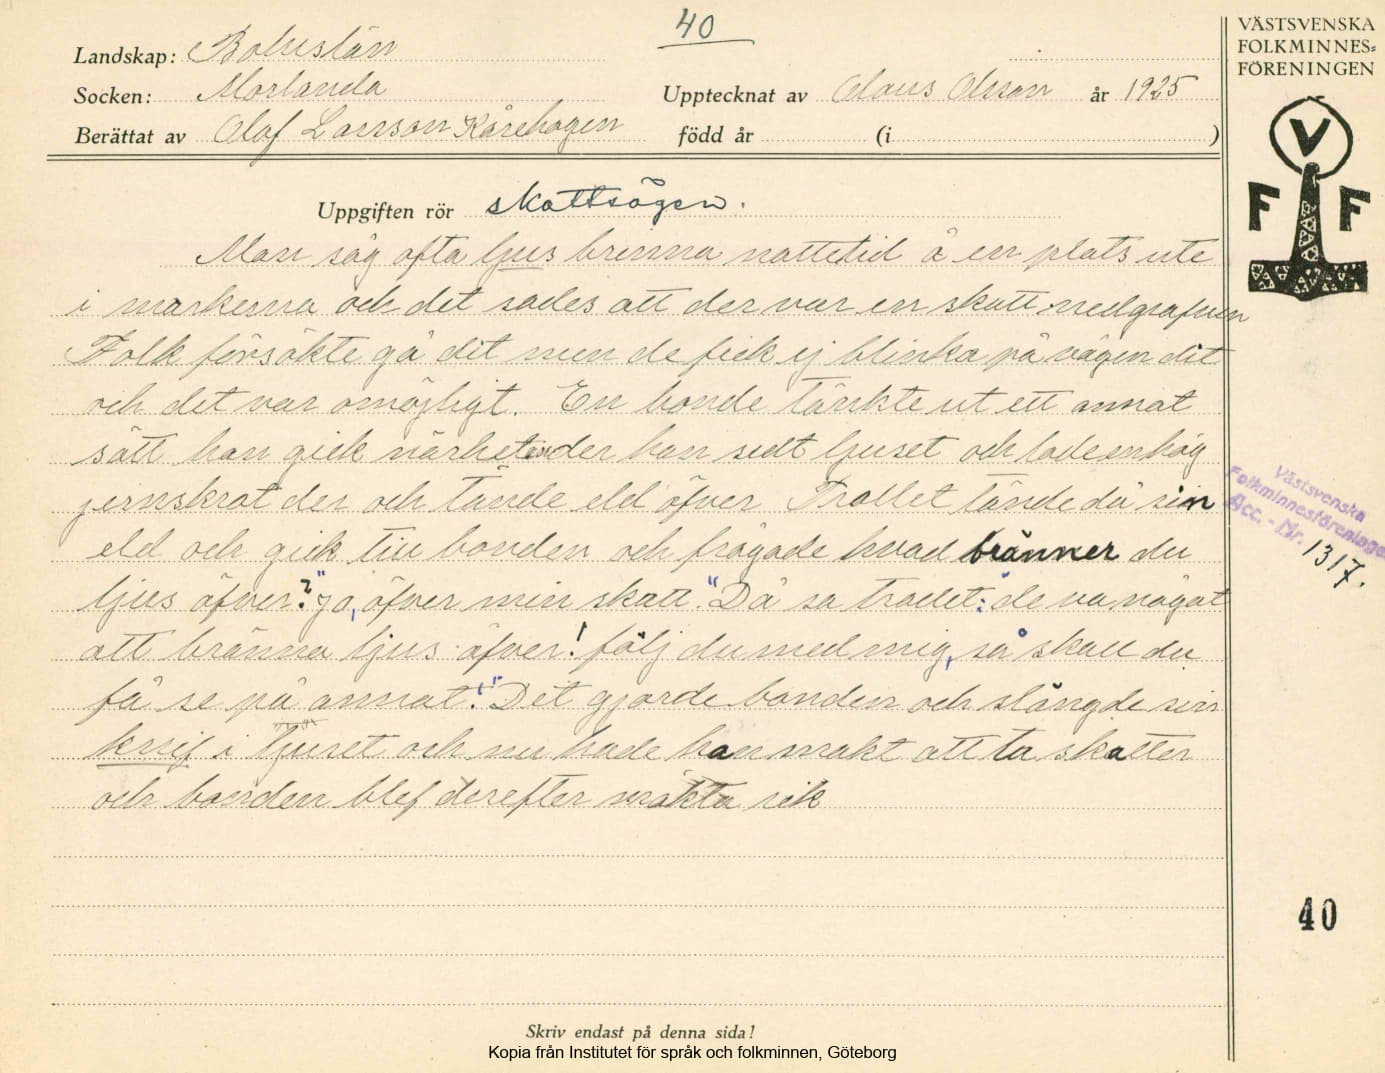 40
Landskap: Bohuslän
Socken: Morlanda
Upptecknat av Olaus Olsson år 1925
Berättat av Olof Larsson Kårehogen född år (i )
Uppgiften rör skattsägen.
Man såg ofta ljus brinna nattetid å en plats ute
i markerna och det sades att der var en skatt nedgrafven
Folk försökte gå dit men de fick ej blinka på vägen dit
och det var omöjligt. En bonde tänkte ut ett annat
sätt han gick närheten der han sedt ljuset och lade en hög
jernskrot der och tände eld öfver Trollet tände då sin
eld och gick till bonden och frågade hvad bränner du
ljus öfver? "Jo, öfver min skatt." Då sa trollet: "de va något
att bränna ljus öfver! följ du med mig, så skall du
få se på annat!" Det gjorde bonden och slängde sin
knif i ljuset och nu hade han makt att ta skatten
och bonden blef derefter mäkta rik
Skriv endast på denna sida!
Kopia från Institutet för språk och folkminnen, Göteborg
VÄSTSVENSKA
FOLKMINNES-
FÖRENINGEN
V
F F
Västsvenska
Folkminnesföreningen
Acc. - Nr. 1317.
40